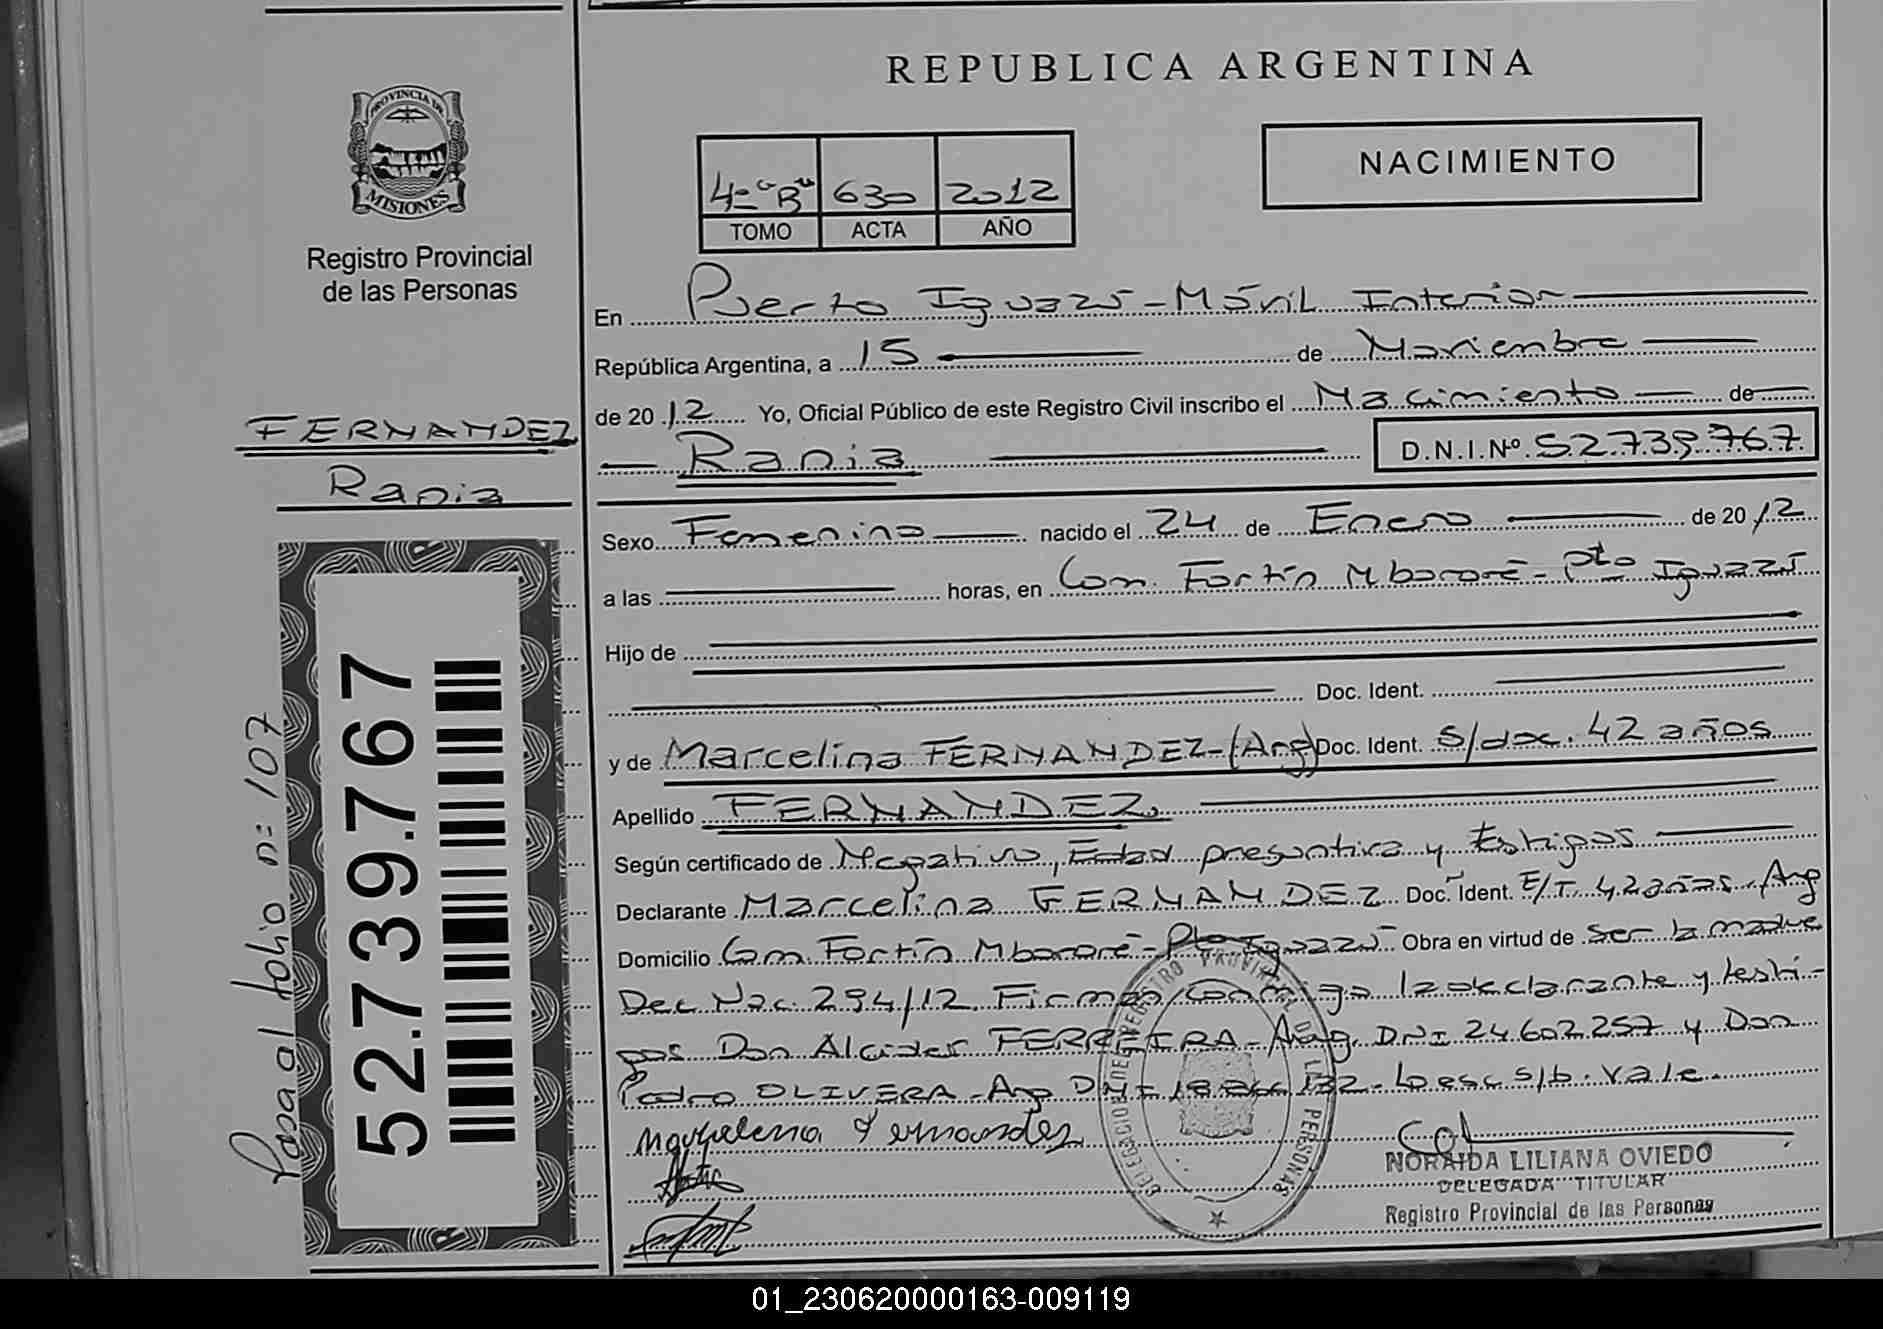 REPUBLICA ARGENTINA
PROVINCIA DE
MISIONES
Registro Provincial
de las Personas
NACIMIENTO
4º "B" 630 2012
TOMO ACTA AÑO
En Puerto Iguazú - Móvil Interior
República Argentina, a 15 de Noviembre
de 2012 Yo, Oficial Público de este Registro Civil inscribo el Nacimiento de
FERNANDEZ
Rania
Rania D.N.I.Nº 52.739.767
Sexo Femenino nacido el 24 de Enero de 2012
a las horas, en Com. Fortín Mbororé - Pto Iguazú
Hijo de
Doc. Ident.
y de Marcelina FERNANDEZ - (Arg) Doc. Ident. S/doc. 42 años
Apellido FERNANDEZ
Según certificado de Negativo, Edad presuntiva y testigos
Declarante Marcelina FERNANDEZ Doc. Ident. E/T. 42 años. Arg
Domicilio Com Fortín Mbororé - Pto Iguazú Obra en virtud de ser la madre
Dec Nac. 294/12. Firman conmigo la declarante y testi-
gos Don Alcides FERREIRA - Arg. DNI 24.602.257 y Don
Pedro OLIVERA - Arg DNI 132 - Lo esc s/b. vale
Fernandes
NORAIDA LILIANA OVIEDO
DELEGADA TITULAR
Registro Provincial de las Personas
DELEGACION DEL REGISTRO PROVINCIAL DE LAS PERSONAS
52.739.767
Pasa al folio nº: 107
01_230620000163-009119